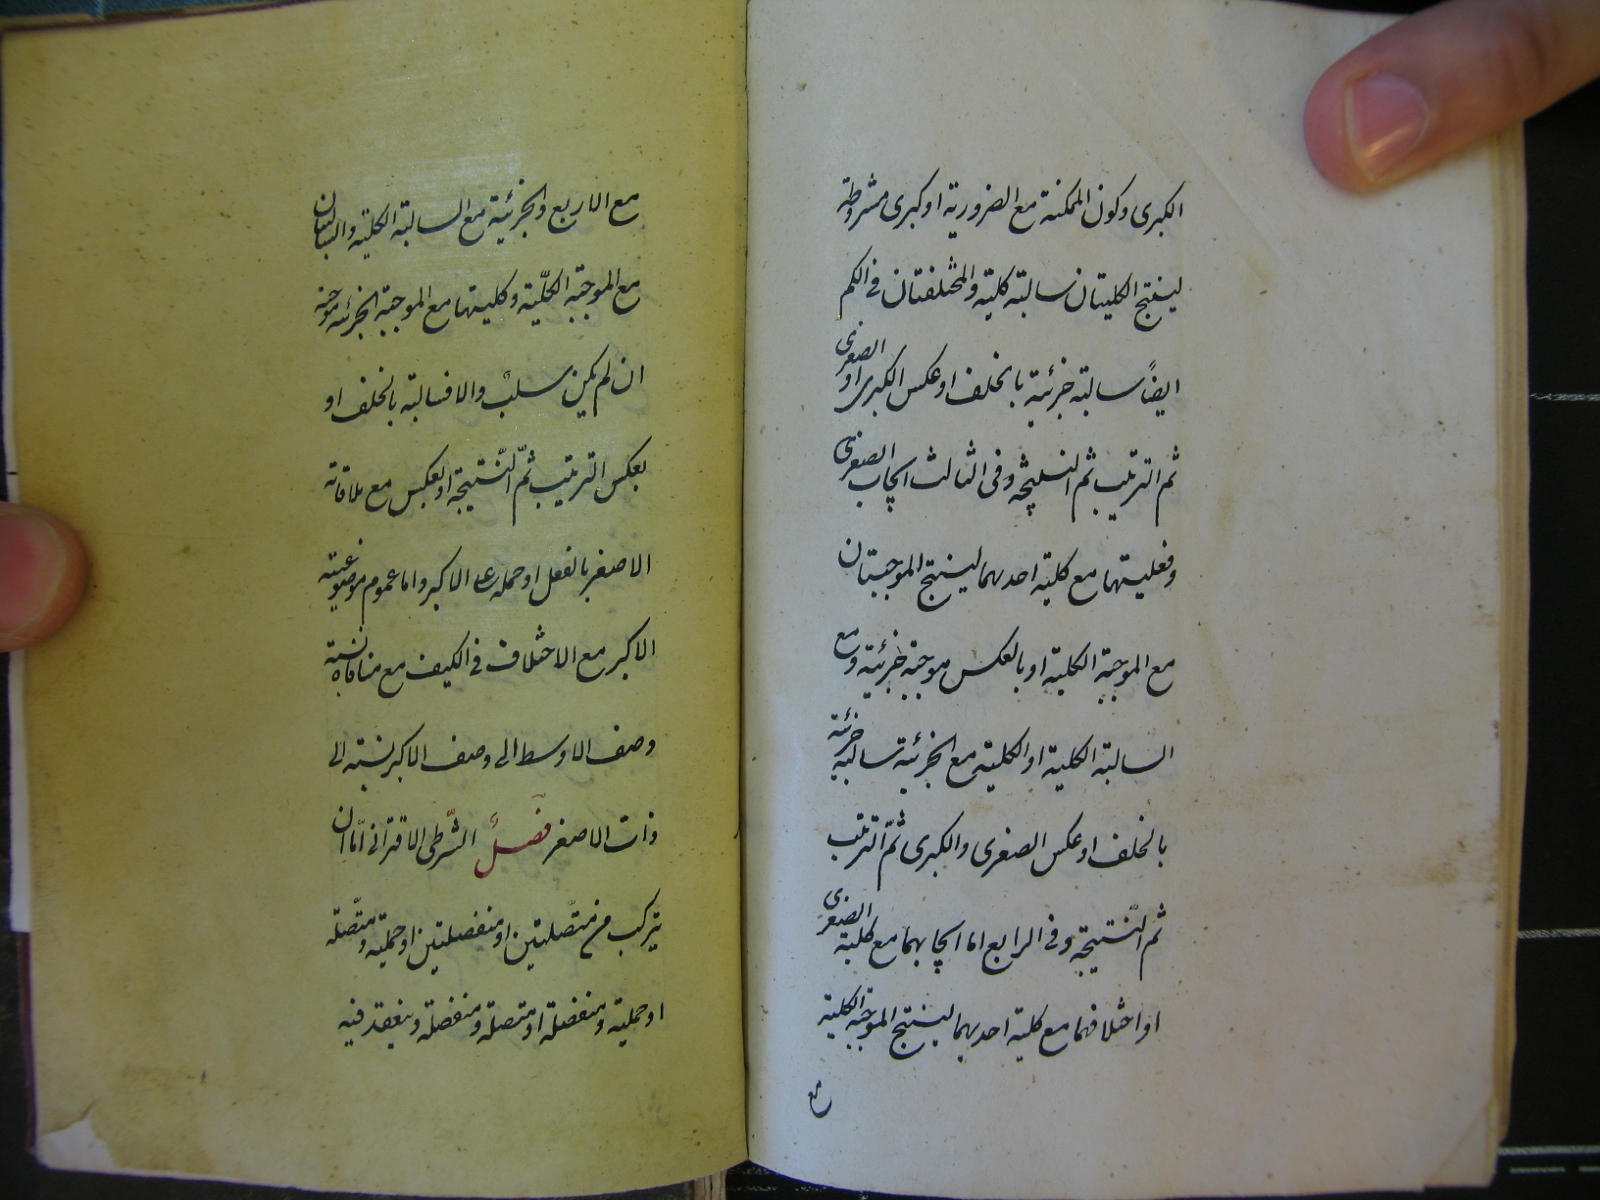 الكبرى وكون الممكنة مع الضرورية او كبرى مشروطة
لينتج الكليتان سالبة كلية والمختلفتان فى الكم
ايضاً سالبة جزئية بالخلف او عكس الكبرى او الصغرى
ثم الترتيب ثم النتيجة وفى الثالث ايجاب الصغرى
وفعليتها مع كلية احديهما لينتج الموجبتان
مع الموجبة الكلية او بالعكس موجبة جزئية ومع
السالبة الكلية او الكلية مع الجزئية سالبة جزئية
بالخلف او عكس الصغرى والكبرى ثمّ الترتيب
ثم النّتيجة وفى الرابع اما ايجابهما مع كلية الصغرى
او اختلافهما مع كلية احديهما لينتج الموجبة الكلية
مع
مع الاربع والجزئية مع السالبة الكلية والسالبتان
مع الموجبة الكلّية وكليتها مع الموجبة الجزئية موجبة
ان لم يكن سلبٌ والا فسالبة بالخلف او
بعكس الترتيب ثمّ النّتيجة او بعكس مع ملاقاة
الاصغر بالفعل او حمله على الاكبر واما عموم موضوعية
الاكبر مع الاختلاف فى الكيف مع منافاة نسبة
وصف الاوسط الى وصف الاكبر لنسبته الى
ذات الاصغر فصلٌ الشّرطى الاقترانى امّا ان
يتركب من متّصلتين او منفصلتين او حملية ومتّصلة
او حملية ومنفصلة او متصلة ومنفصلة وينعقد فيه